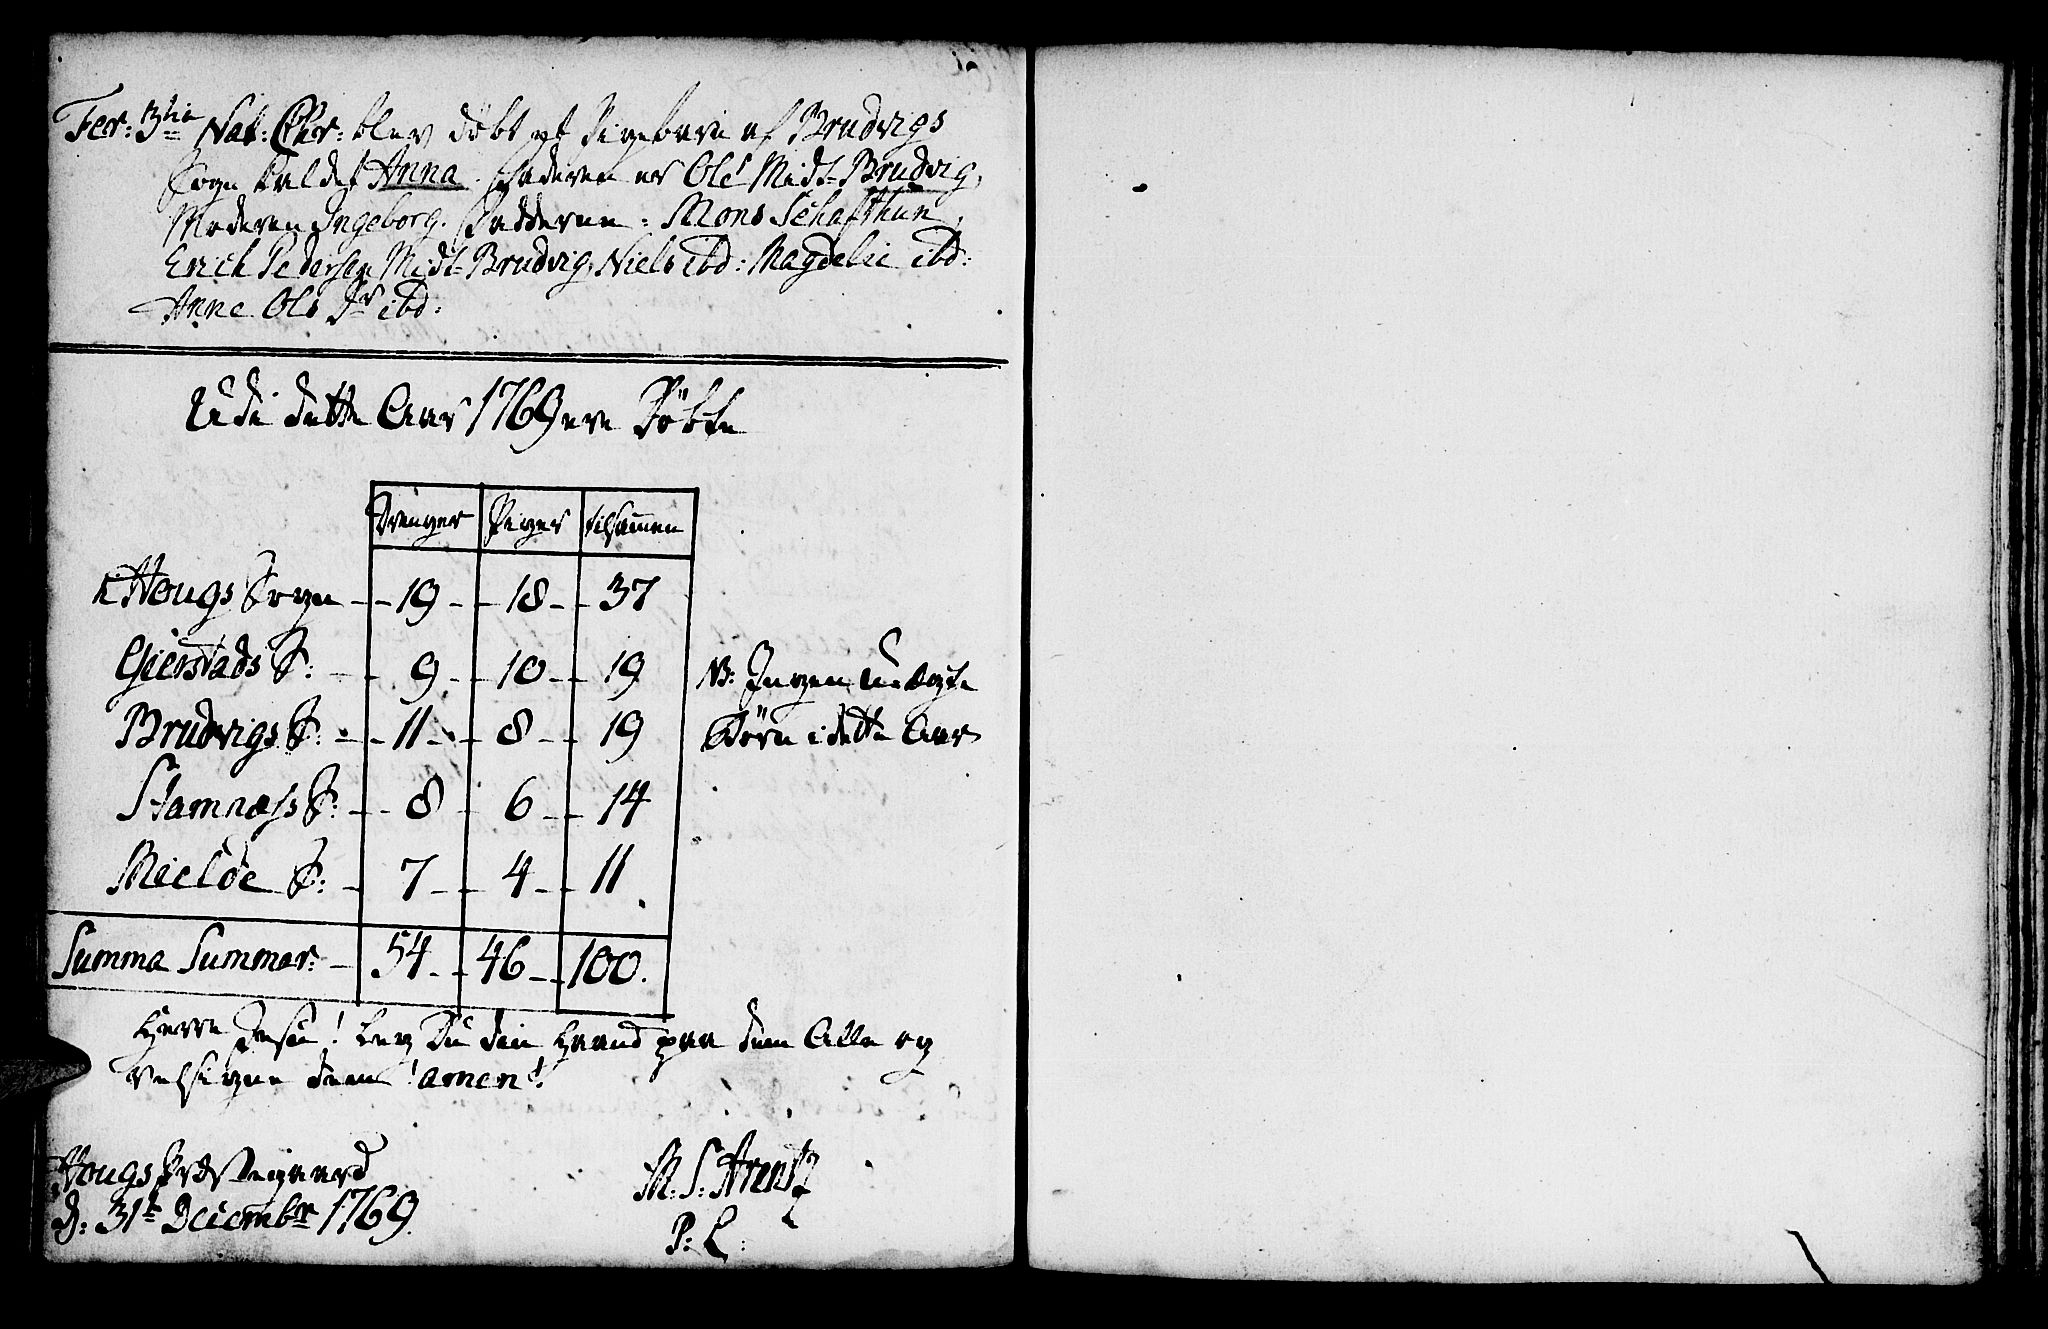 Fer: 3tie Nat: Chr: blev døbt et Pigebarn af Brudvigs
Sogn kaldet Anna. Faderen er Ole Midt-Brudvig,
Moderen Ingeborg. Fadderne: Mons Schafthun,
Erich Pedersen Midt-Brudvig, Niels ibd: Magdelie ibd:
Anne Ols Dr ibd:
Udi dette Aar 1769 ere Døbte
Drenger Piger tilsammen
i Hougs Sogn - 19 - 18 - 37
Gierstads S: - 9 - 10 - 19 NB: Ingen Uægte
Brudvigs S: - 11 - 8 - 19 Børn i dette Aar
Stamnæss S: - 8 - 6 - 14
Mielde S: - 7 - 4 - 11
Summa Summar: - 54 - 46 - 100.
Herre Jesu! Leg Du din Haand paa dem Alle og
velsigne dem! amen!
Hougs Præstegaard M: S: Arentz
d: 31te Decembr 1769. P: L: